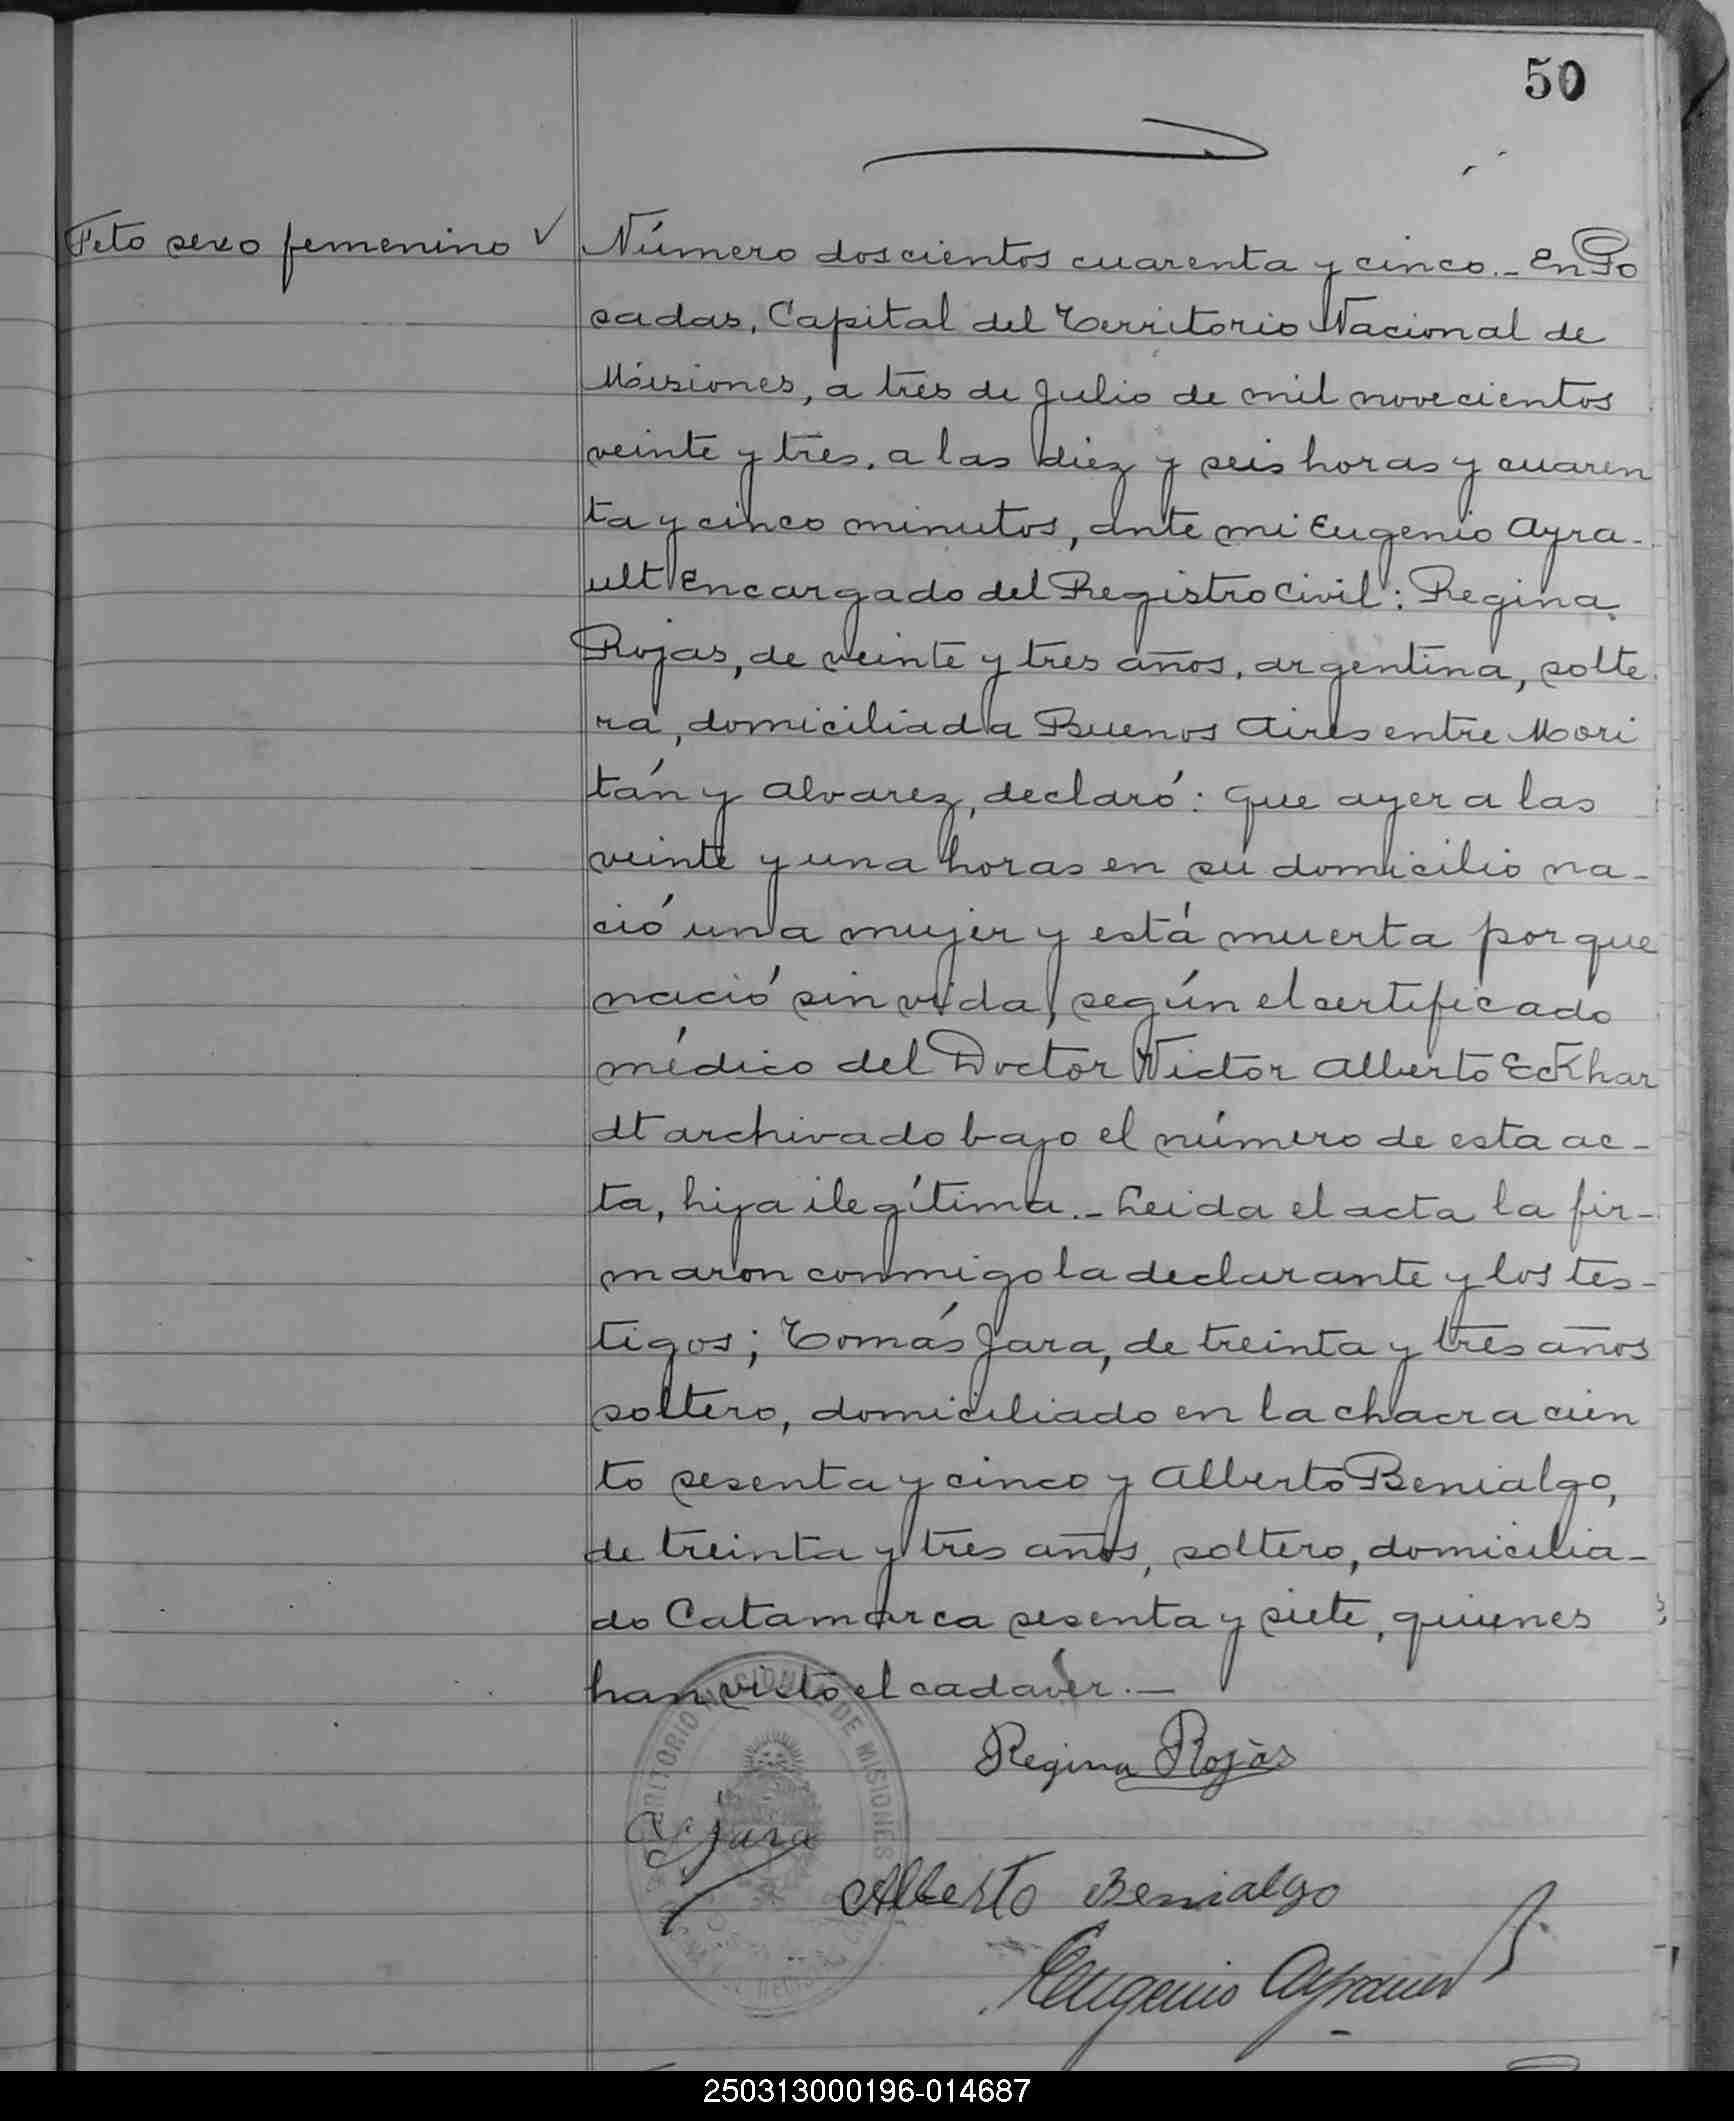 50
Feto sexo femenino ✓
Número doscientos cuarenta y cinco.- En Po
sadas, Capital del Territorio Nacional de
Misiones, a tres de Julio de mil novecientos
veinte y tres, a las diez y seis horas y cuaren
ta y cinco minutos, ante mi Eugenio Ayra-
ult Encargado del Registro Civil: Regina
Rojas, de veinte y tres años, argentina, solte
ra, domiciliada Buenos Aires entre Mori
tán y Alvarez, declaró: Que ayer a las
veinte y una horas en su domicilio na-
ció una mujer y está muerta porque
nació sin vida, según el certificado
médico del Doctor Victor Alberto Eckhar
dt archivado bajo el número de esta ac-
ta, hija ilegítima.- Leida el acta la fir-
maron conmigo la declarante y los tes-
tigos; Tomás Jara, de treinta y tres años
soltero, domiciliado en la chacra cien
to sesenta y cinco y Alberto Benialgo,
de treinta y tres años, soltero, domicilia-
do Catamarca sesenta y siete, quienes
han visto el cadáver.-
TERRITORIO NACIONAL DE MISIONES
Regina Rojas
T. Jara
Alberto Benialgo
Eugenio Ayrault
250313000196-014687